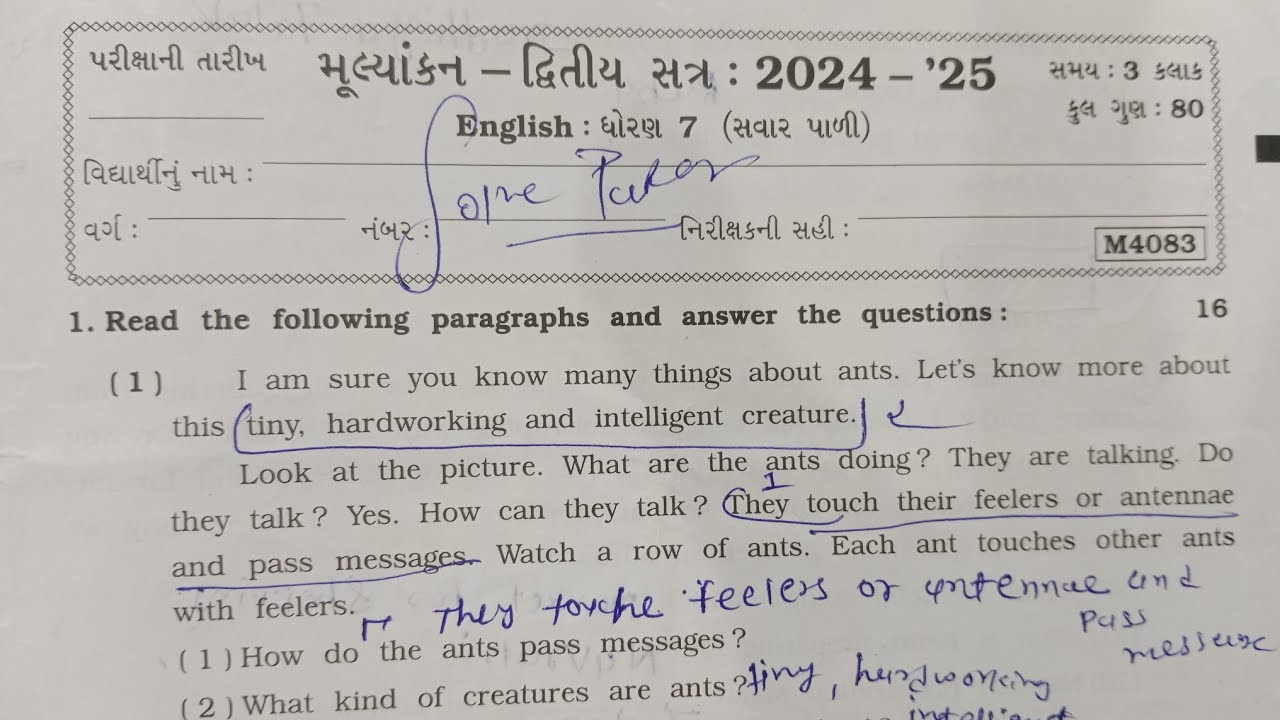 પરીક્ષાની તારીખ
મૂલ્યાંકન – દ્વિતીય સત્ર : 2024 – '25
સમય : 3 કલાક
કુલ ગુણ : 80
English : ધોરણ 7 (સવાર પાળી)
વિદ્યાર્થીનું નામ :
વર્ગ :
નંબર :
નિરીક્ષકની સહી :
M4083
1. Read the following paragraphs and answer the questions : 16
(1) I am sure you know many things about ants. Let's know more about
this tiny, hardworking and intelligent creature. 2
Look at the picture. What are the ants doing? They are talking. Do
1
they talk? Yes. How can they talk? They touch their feelers or antennae
and pass messages. Watch a row of ants. Each ant touches other ants
with feelers.
They touche feelers or antennae and
pass
(1) How do the ants pass messages?
(2) What kind of creatures are ants? tiny, hardworking
intelligent